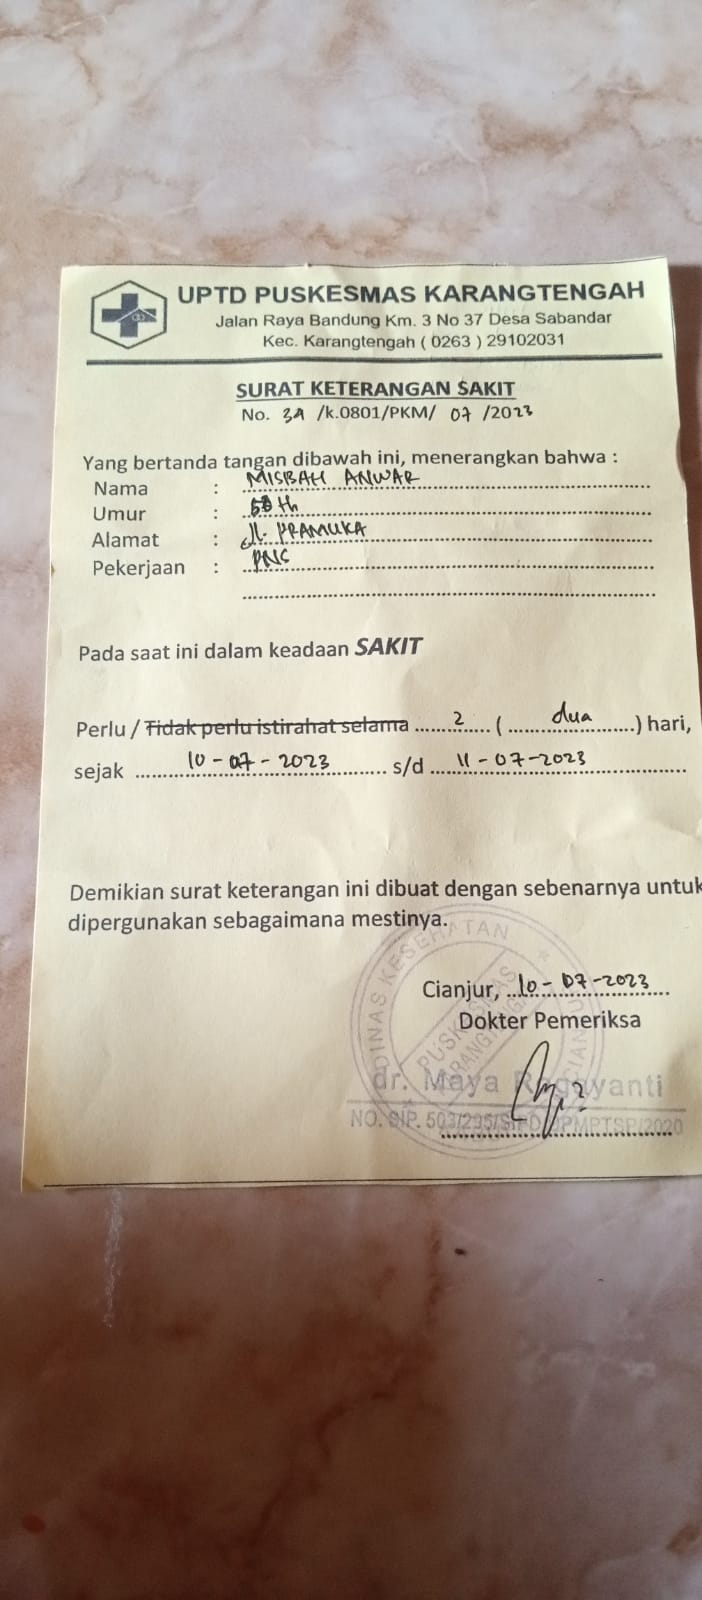 UPTD PUSKESMAS KARANGTENGAH
Jalan Raya Bandung Km. 3 No 37 Desa Sabandar
Kec. Karangtengah ( 0263 ) 29102031
SURAT KETERANGAN SAKIT
No. 3A /k.0801/PKM/ 07 /2023
Yang bertanda tangan dibawah ini, menerangkan bahwa :
Nama : MISBAH ANWAR
Umur : th
Alamat : Jl. PRAMUKA
Pekerjaan : PNS
Pada saat ini dalam keadaan SAKIT
Perlu / Tidak perlu istirahat selama 2 ( dua ) hari,
sejak 10-07-2023 s/d 11-07-2023
Demikian surat keterangan ini dibuat dengan sebenarnya untuk
dipergunakan sebagaimana mestinya.
DINAS KESEHATAN
PUSKESMAS
KARANGTENGAH
CIANJUR
Cianjur, 10-07-2023
Dokter Pemeriksa
dr. Maya
NO. SIP. 503/295/